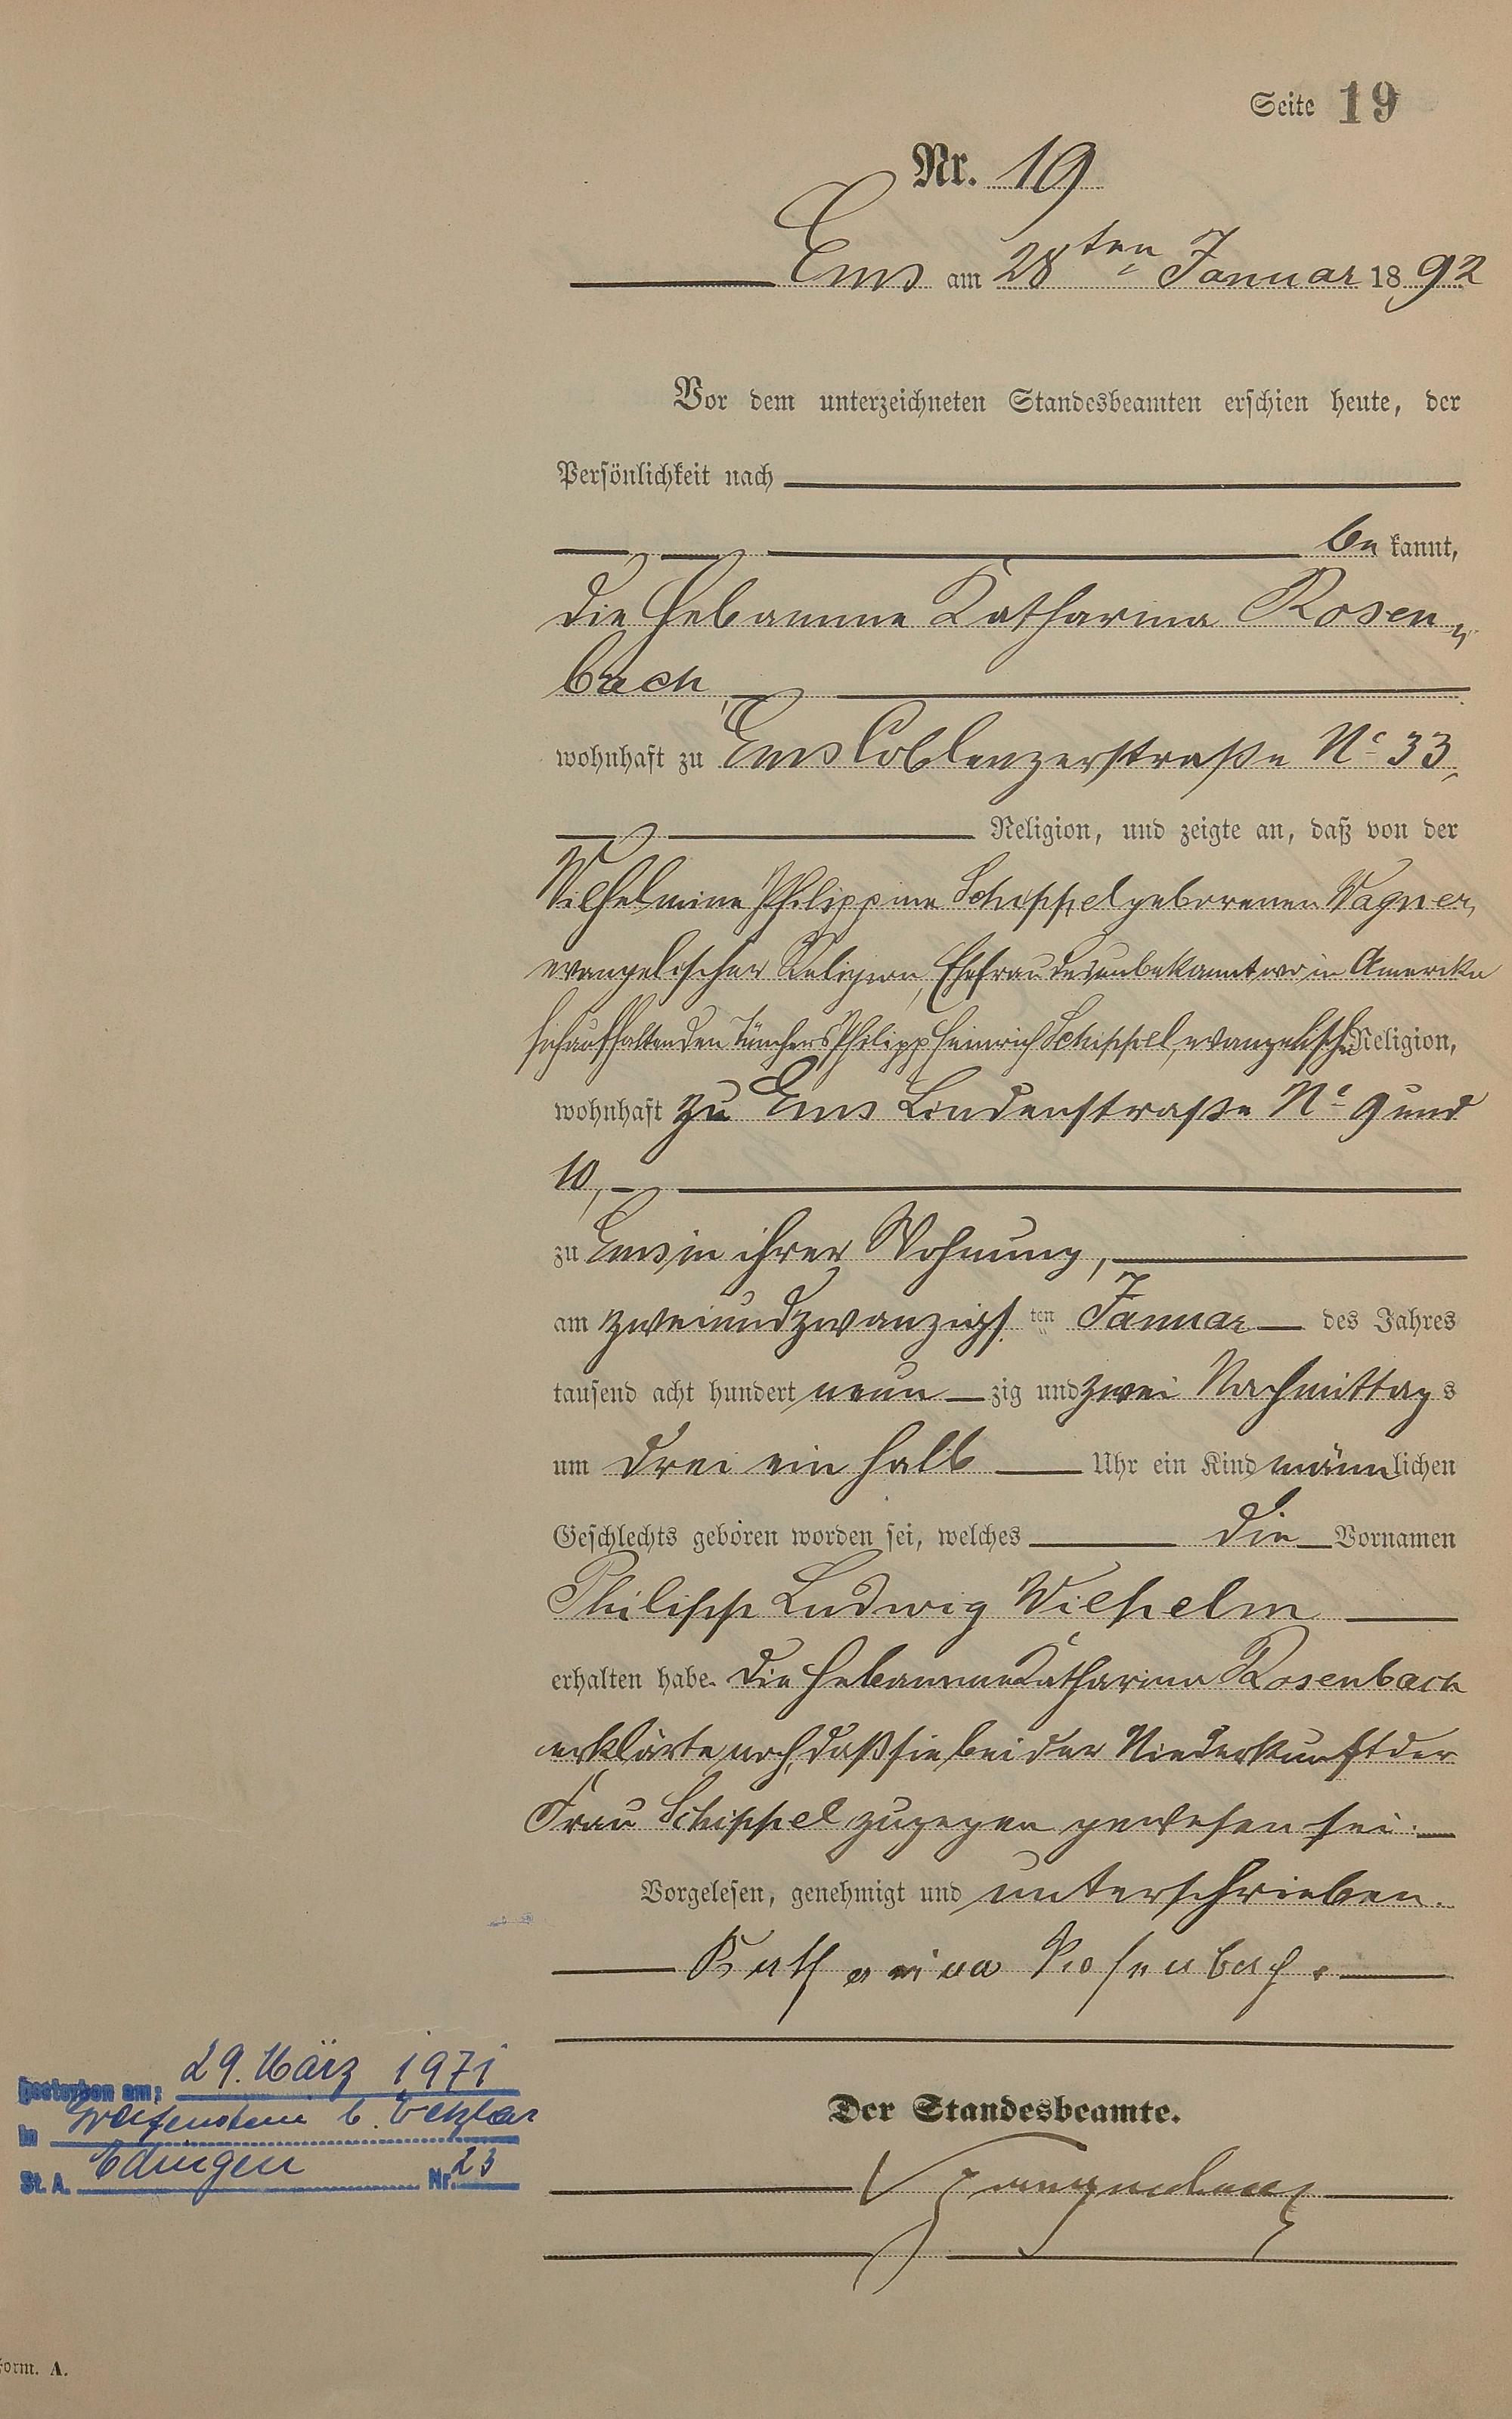 Seite 19
Nr. 19
Ems am 28ten Januar 1892
Vor dem unterzeichneten Standesbeamten erschien heute, der
Persönlichkeit nach
be kannt,
die Hebamme Katharina Rosen„
bach,
wohnhaft zu Ems Coblenzerstraße No 33,
Religion, und zeigte an, daß von der
Wilhelmine Philippine Schippel geborenen Wagner,
evangelischer Religion, Ehefrau des unbekannt wo in Amerika
sich aufhaltenden Tünchers Philipp Heinrich Schippel, evangelischer Religion,
wohnhaft zu Ems Lindenstraße No 9 und
10,
zu Ems in ihrer Wohnung,
am zweiundzwanzigsten Januar des Jahres
tausend acht hundert neun zig und zwei Nachmittags
um drei ein halb Uhr ein Kind männlichen
Geschlechts geboren worden sei, welches die Vornamen
Philipp Ludwig Wilhelm
erhalten habe. Die Hebamme Katharina Rosenbach
erklärte noch, daß sie bei der Niederkunft der
Frau Schippel zugegen gewesen sei.
Vorgelesen, genehmigt und unterschrieben.
Katharina Rosenbach.
gestorben am: 29. März 1971
in Greifenstein b. Wetzlar
St. A. Edingen Nr. 23
Der Standesbeamte.
Form. A.